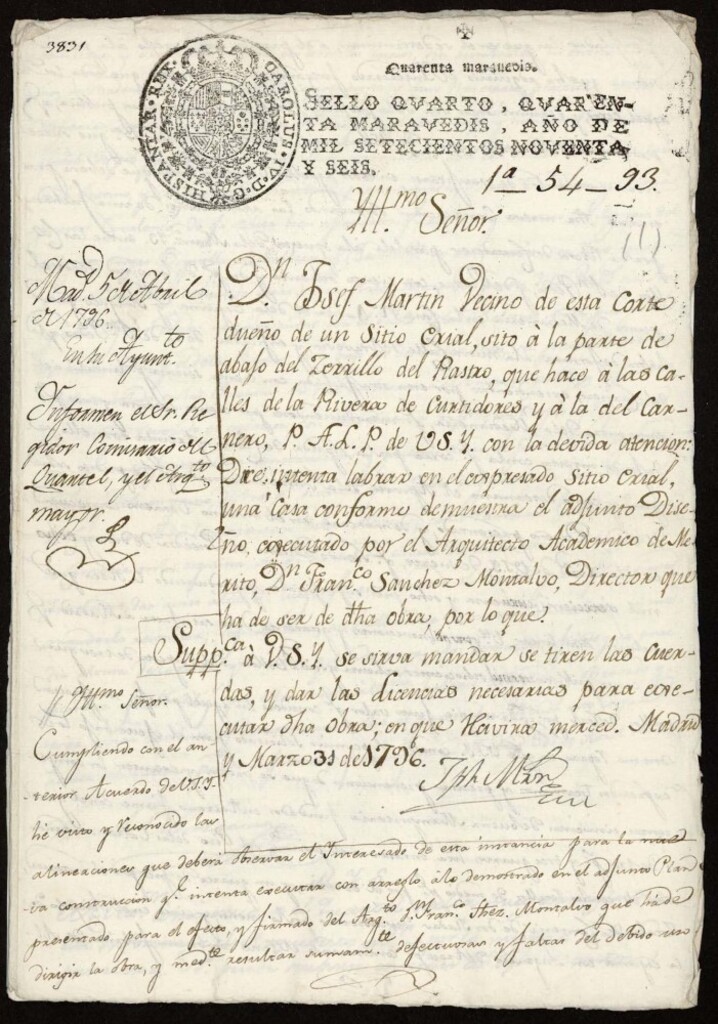 3831
CAROLUS·IV·D·G·HISPANIAR·REX·
Quarenta marauedis.
SELLO QVARTO, QVAREN-
TA MARAVEDIS, AÑO DE
MIL SETECIENTOS NOVENTA
Y SEIS.
1ª-54-93.
Yllmo Señor.
(1)
Madd. 5 de Abril
de 1796.
En su Ayuntto
Informen el Sr. Re-
gidor Comisario del
Quartel, y el Arqto
mayor
Dn Josef Martin Vecino de esta Corte
dueño de un Sitio Erial, sito à la parte de
abajo del Zerrillo del Rastro, que hace à las Ca-
lles de la Rivera de Curtidores y à la del Car-
nero, P. A. L. P. de V S. Y. con la devida atencion:
Dice, intenta labrar en el expresado Sitio Erial,
una Casa conforme demuestra el adjunto Dise-
ño, executado por el Arquitecto Academico de Me-
rito, Dn Franco Sanchez Montalvo, Director que
ha de ser de dha obra, por lo que:
Suppca à V. S. Y. se sirva mandar se tiren las Cuer-
das, y dar las licencias necesarias para exe-
cutar dha Obra; en que Recivirà merced. Madrid
y Marzo 31 de 1796.
Jph Mrn
Yllmo Señor.
Cumpliendo con el an-
terior Acuerdo de V.S.Y.
he visto y reconocido las
alineaciones que deberá observar el Interesado de esta instancia para la nue-
va construccion qe intenta executar con arreglo à lo demostrado en el adjunto Plan
presentado para el efecto, y firmado del Arqto Dn Franco Shez. Montalvo que ha de
dirigir la obra, y medte resultar sumamte defectuosas y faltas del debido